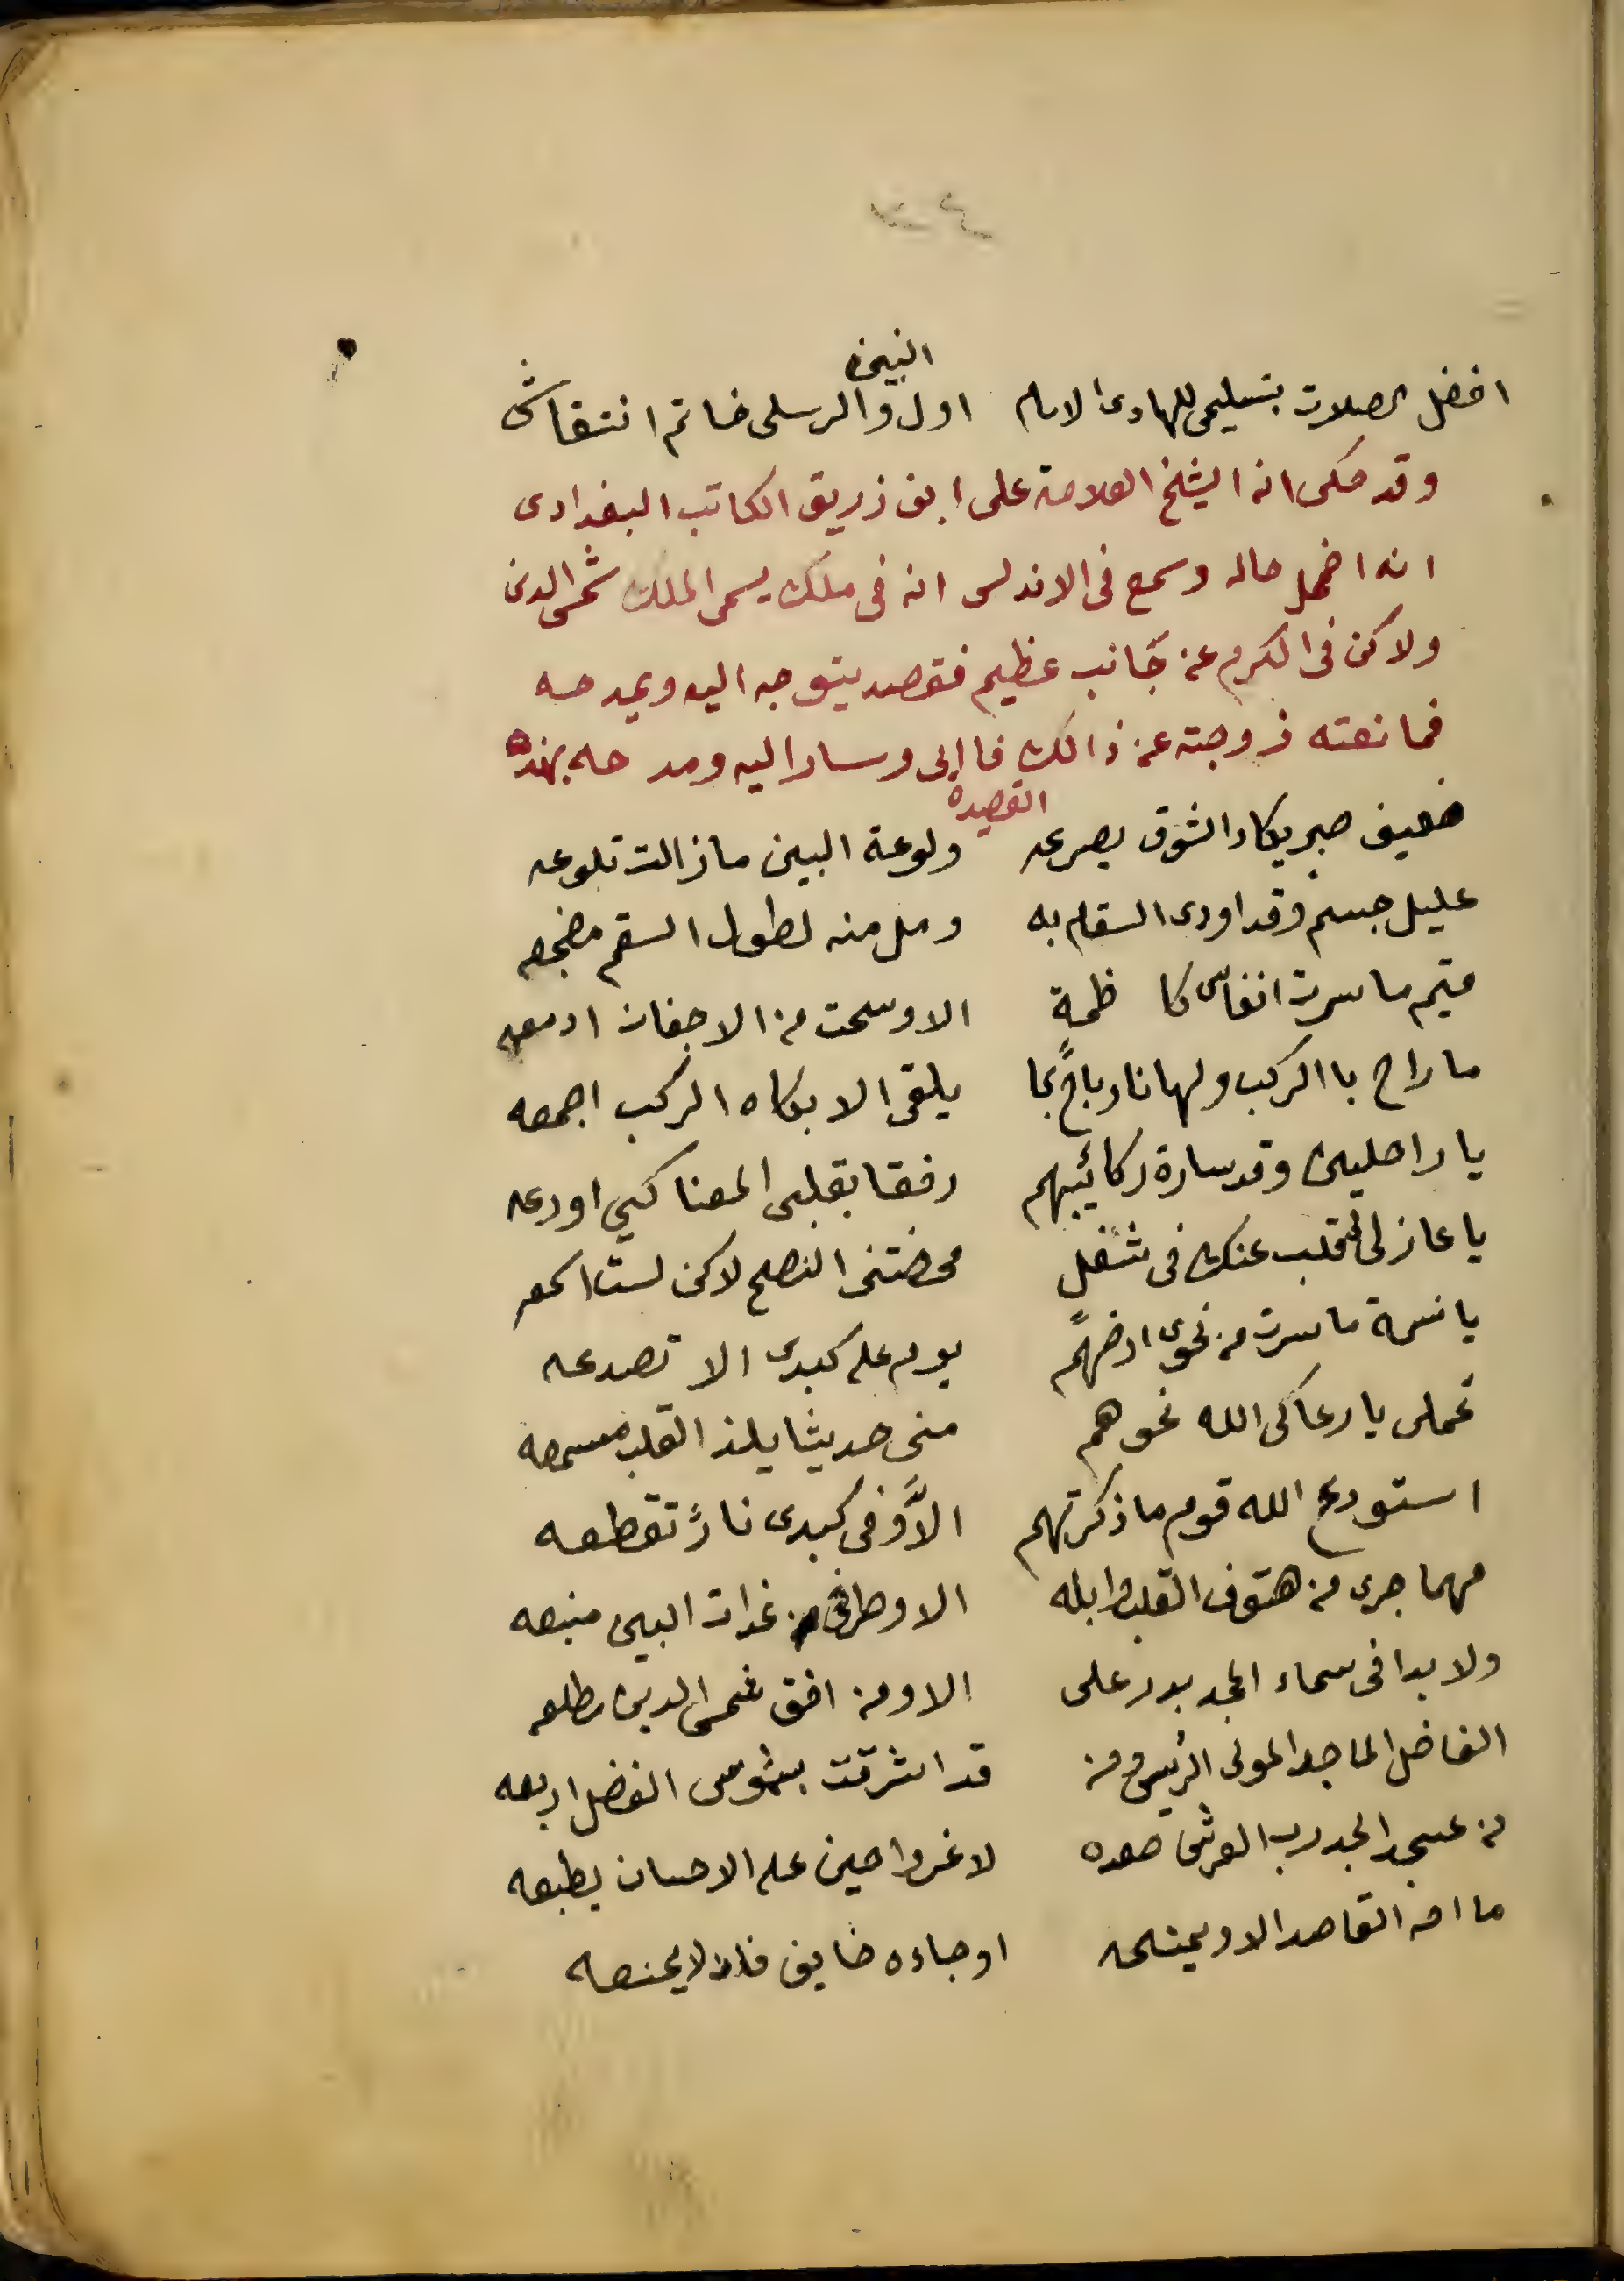 النبين
افضل الصلات بتسليمى للهادى الامام اول والرسلى خاتم انتقاش
وقد حكى ان الشيخ العلامة على ابن زريق الكاتب البغدادى
انه اضمحل حاله وسمع فى الاندلس انه فى ملك يسمى الملك شمس الدين
ولاكن فى الكرم عن جانب عظيم فقصد يتوجه اليه ويمدحه
فمانعته زوجته عن ذالك فاابى وسار اليه ومدحه بهذه
القصيده
ضعيف صبر يكاد الشوق يصرعه ولوعة البين مازالت تلوعه
عليل جسم وقد اودى السقام به ومل منه لطول السقم مضجعه
متيم ما سرت انفاس كا ظمة الا وسحت من الاجفان ادمعه
ما راح باالركب ولهانا وباح بما يلقى الا بكاه الركب اجمعه
يا راحلين وقد سارة ركائبهم رفقا بقلبى المعنا كي اودعه
يا عاذلى القلب عنك فى شغل محضتنى النصح لاكن لست اسمعه
يا نسمة ما سرت من نحوى ارضهم يوم على كبدى الا تصدعه
تحملى يا رعاكى الله نحوهم منى حديثا يلذ القلب مسمعه
استودع الله قوم ما ذكرتهم الا وفى كبدى نار تقطعه
مهما جرى من هتوف القلب وابله الا وطرفى من غدات البين منبعه
ولا بدا فى سماء المجد بدر على الا ومن افق شمس الدين مطلعه
الفاضل الماجد المولى الرئيس ومن قد اشرقت بشموس الفضل اربعه
من عسجد المجد رب العرش صوره لا غروا حين على الاحسان يطبعه
ما امه القاصد الا ويمنحه او جاءه خايف فلان لا يمنعه